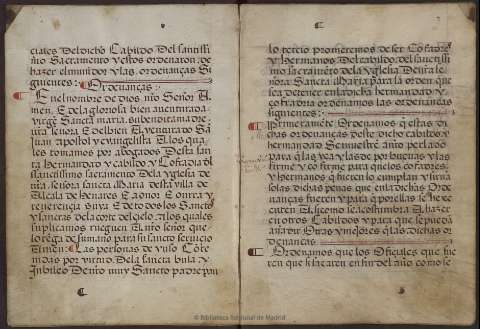 ciales Del dicho Cabildo Del santissi
mo Sacramento y estos ordenaron de
hazer el munidor y las ordenanças Si
guientes:
Ordenanças:
En el nombre de dios nro Señor A
men. E de la gloriosa bien auenturada
virgē Sancta maria su bendita madre
nra señora E del bien Aventurado Sā
Juan apostol y evangelista A los qua
les tomamos por abogados Desta san
ta hermandad y cabildo y Cofradia del
sanctissimo sacramento De la yglesia de
nra señora sancta Maria desta villa de
Alcala de Henares E a onor E onrra y
reverencia suya E de todos los Sanctos
y sanctas de la corte del cielo. A los quales
suplicamos rueguen A nro señor que
lo rrega de su mano para su sancto servicio
Amen. Las personas de yuso Con
tenidas por virtud De la sancta bula y
Jubileo De nro muy Sancto padre pau
lo tercio prometemos de ser Cofadres
y Hermanos Del cabildo del sanctissi
mo sacramēto de la Yglesia De nra se
ñora Sancta Maria para la orden que
se a de tener en la dicha hermandad y
cofradria ordenamos las ordenanças
siguientes:
Primeramēte Ordenamos q̄ estas di
chas ordenanças deste dicho cabildo y
hermandad Se muestrē Al nro perlado
para q̄ las vea y las de por buenas y las
firme y confirme para que los cofadres
y hermanos q̄ fueren lo cumplan y firma
so las dichas penas que en la dichas Orde
nanças fueren y para q̄ por ellas se he xe
cuten Assi como se acostumbra A hazer
en otros Cabildos y para que se pueda
añadir Otras y mejores q̄ las dichas or
denanças
Ordenamos que los Oficiales que fue
ren que se sacaren en fin del año como se
© Biblioteca Regional de Madrid